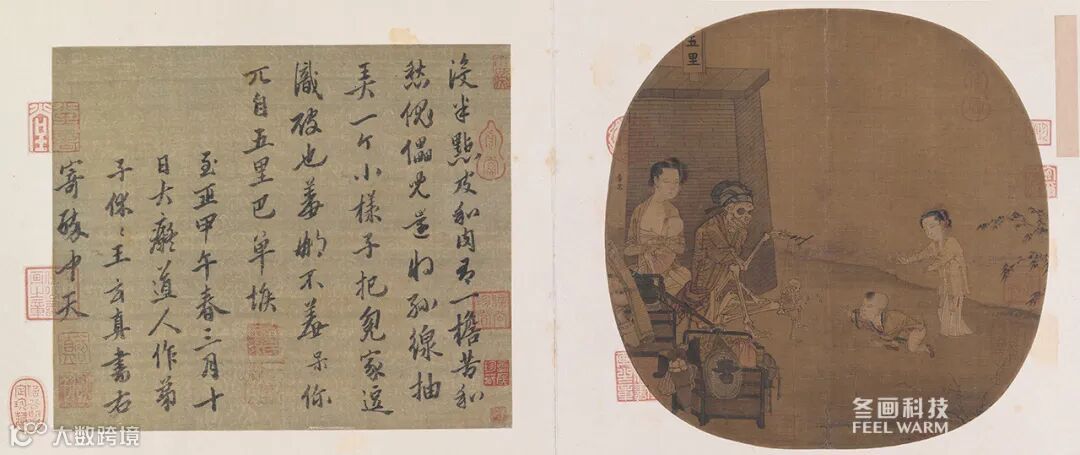 没半點皮和肉有一擔苦和
愁傀儡児還将絲線抽
弄一个小樣子把冤家逗
識破也羞那不羞呆你
兀自五里巴单堠
至正甲午春三月十
日大癡道人作弟
子休々王玄真書右
寄醉中天
五里
大数跨境
冬画科技
FEEL WARM